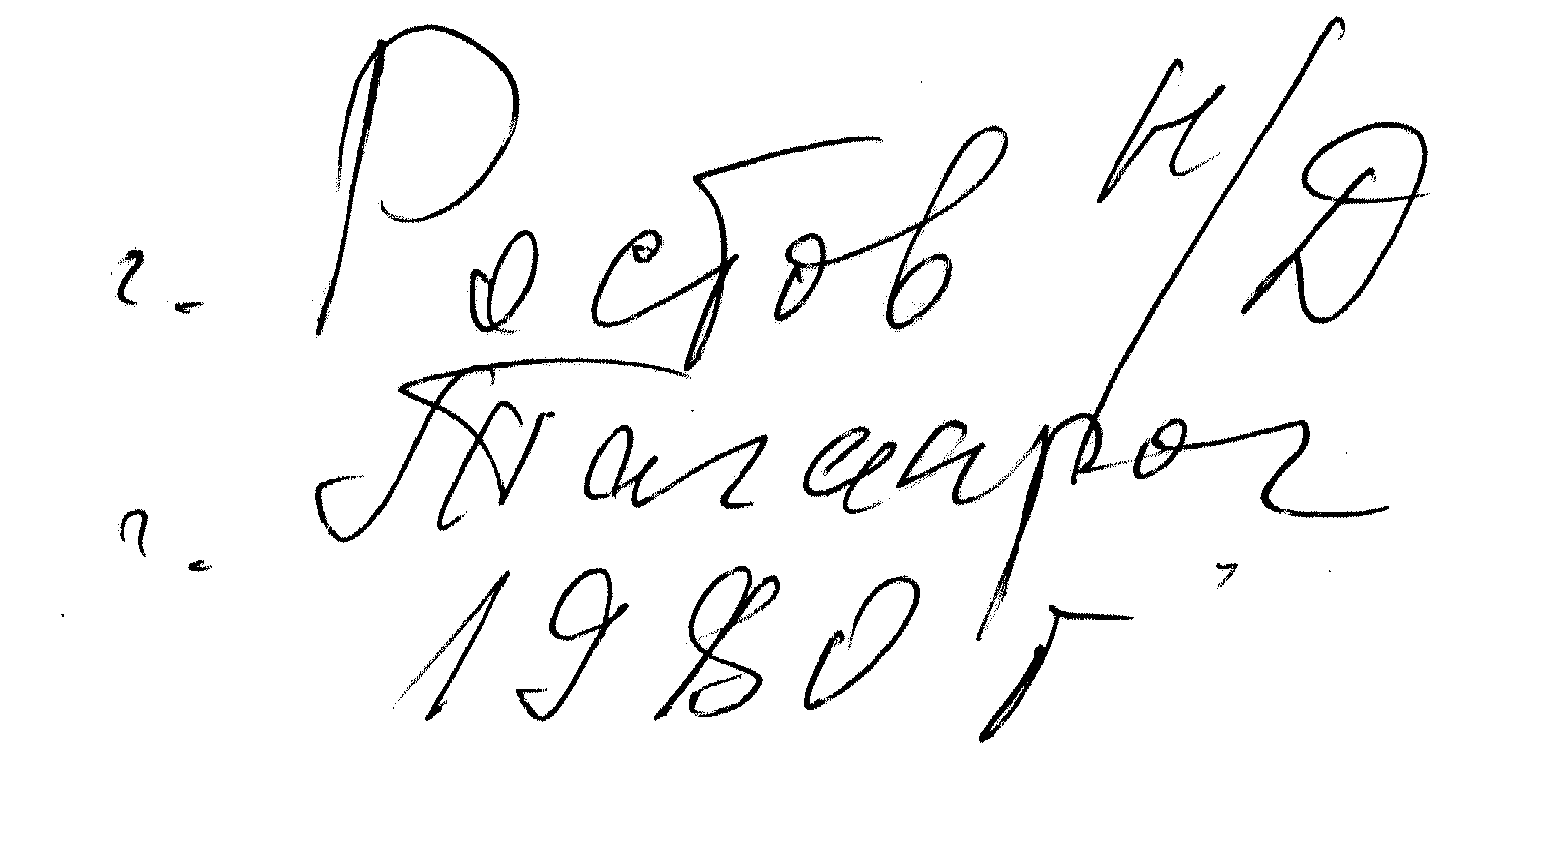 г. Ростов н/Д
г. Таганрог
1980 г